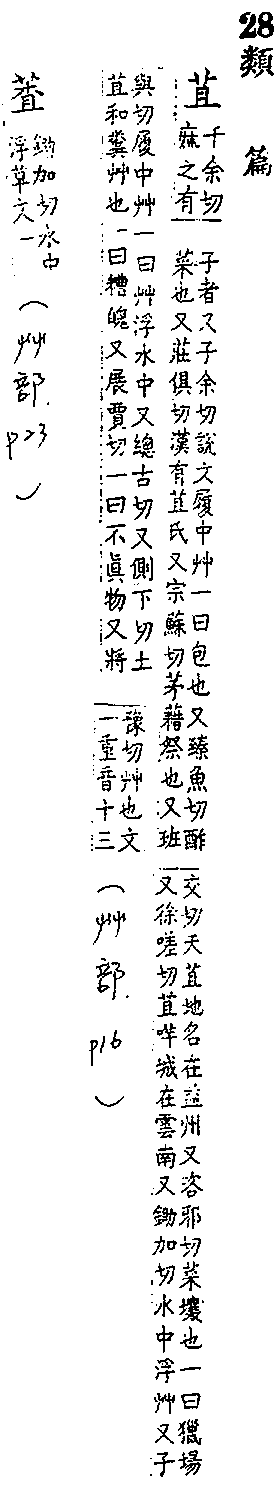 28 類篇
苴
千余切
麻之有
子者又子余切說文履中艸一曰包也又臻魚切酢
菜也又莊俱切漢有苴氏又宗蘇切茅藉祭也又班
交切天苴地名在益州又咨邪切菜壞也一曰獵場
又徐嗟切苴咩城在雲南又鋤加切水中浮艸又子
與切履中艸一曰艸浮水中又總古切又側下切土
苴和糞艸也一曰糟魄又展賈切一曰不眞物又將
豫切艸也文
一重音十三
(艸部 p16)
鋤加切水中
浮草文一
(艸部 p23)